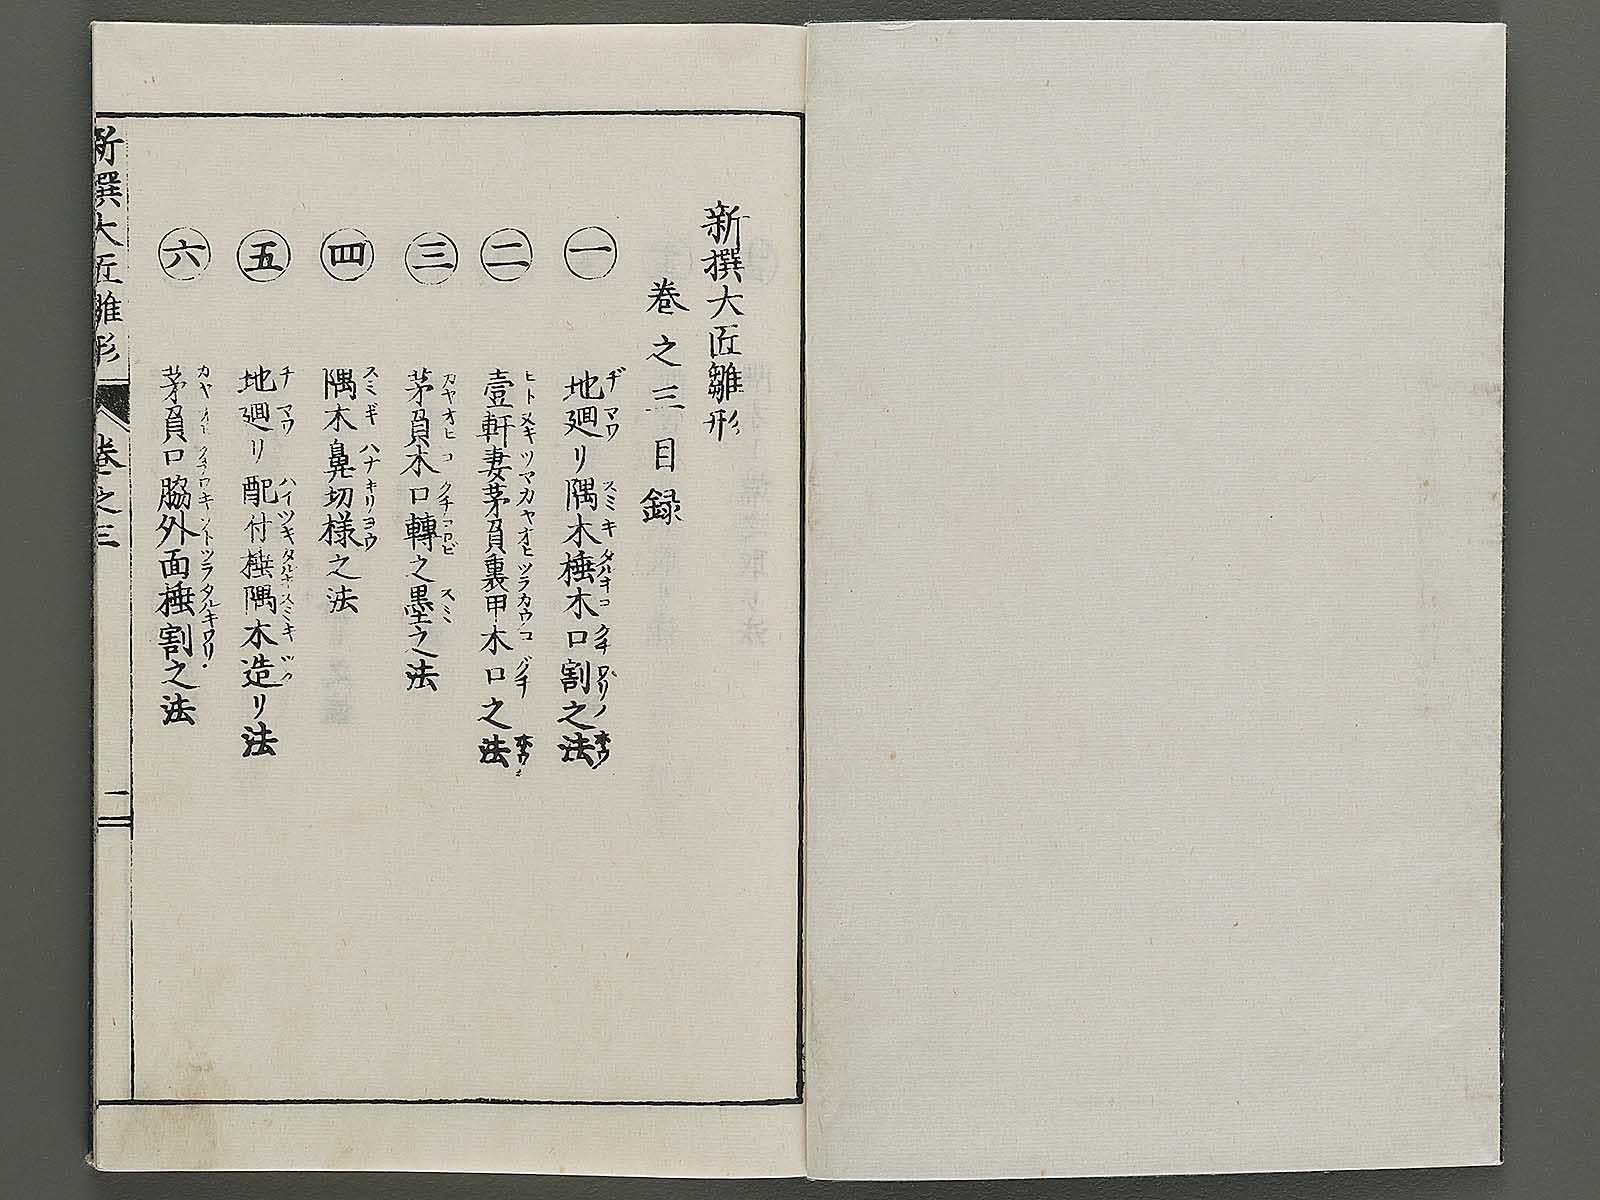 新撰大匠雛形
巻之三目録
一 地廻リ隅木棰木口割之法
二 壹軒妻茅負裏甲木口之法
三 茅負木口轉之墨之法
四 隅木鼻切様之法
五 地廻リ配付棰隅木造リ法
六 茅負口脇外面棰割之法
新撰大匠雛形 巻之三 二